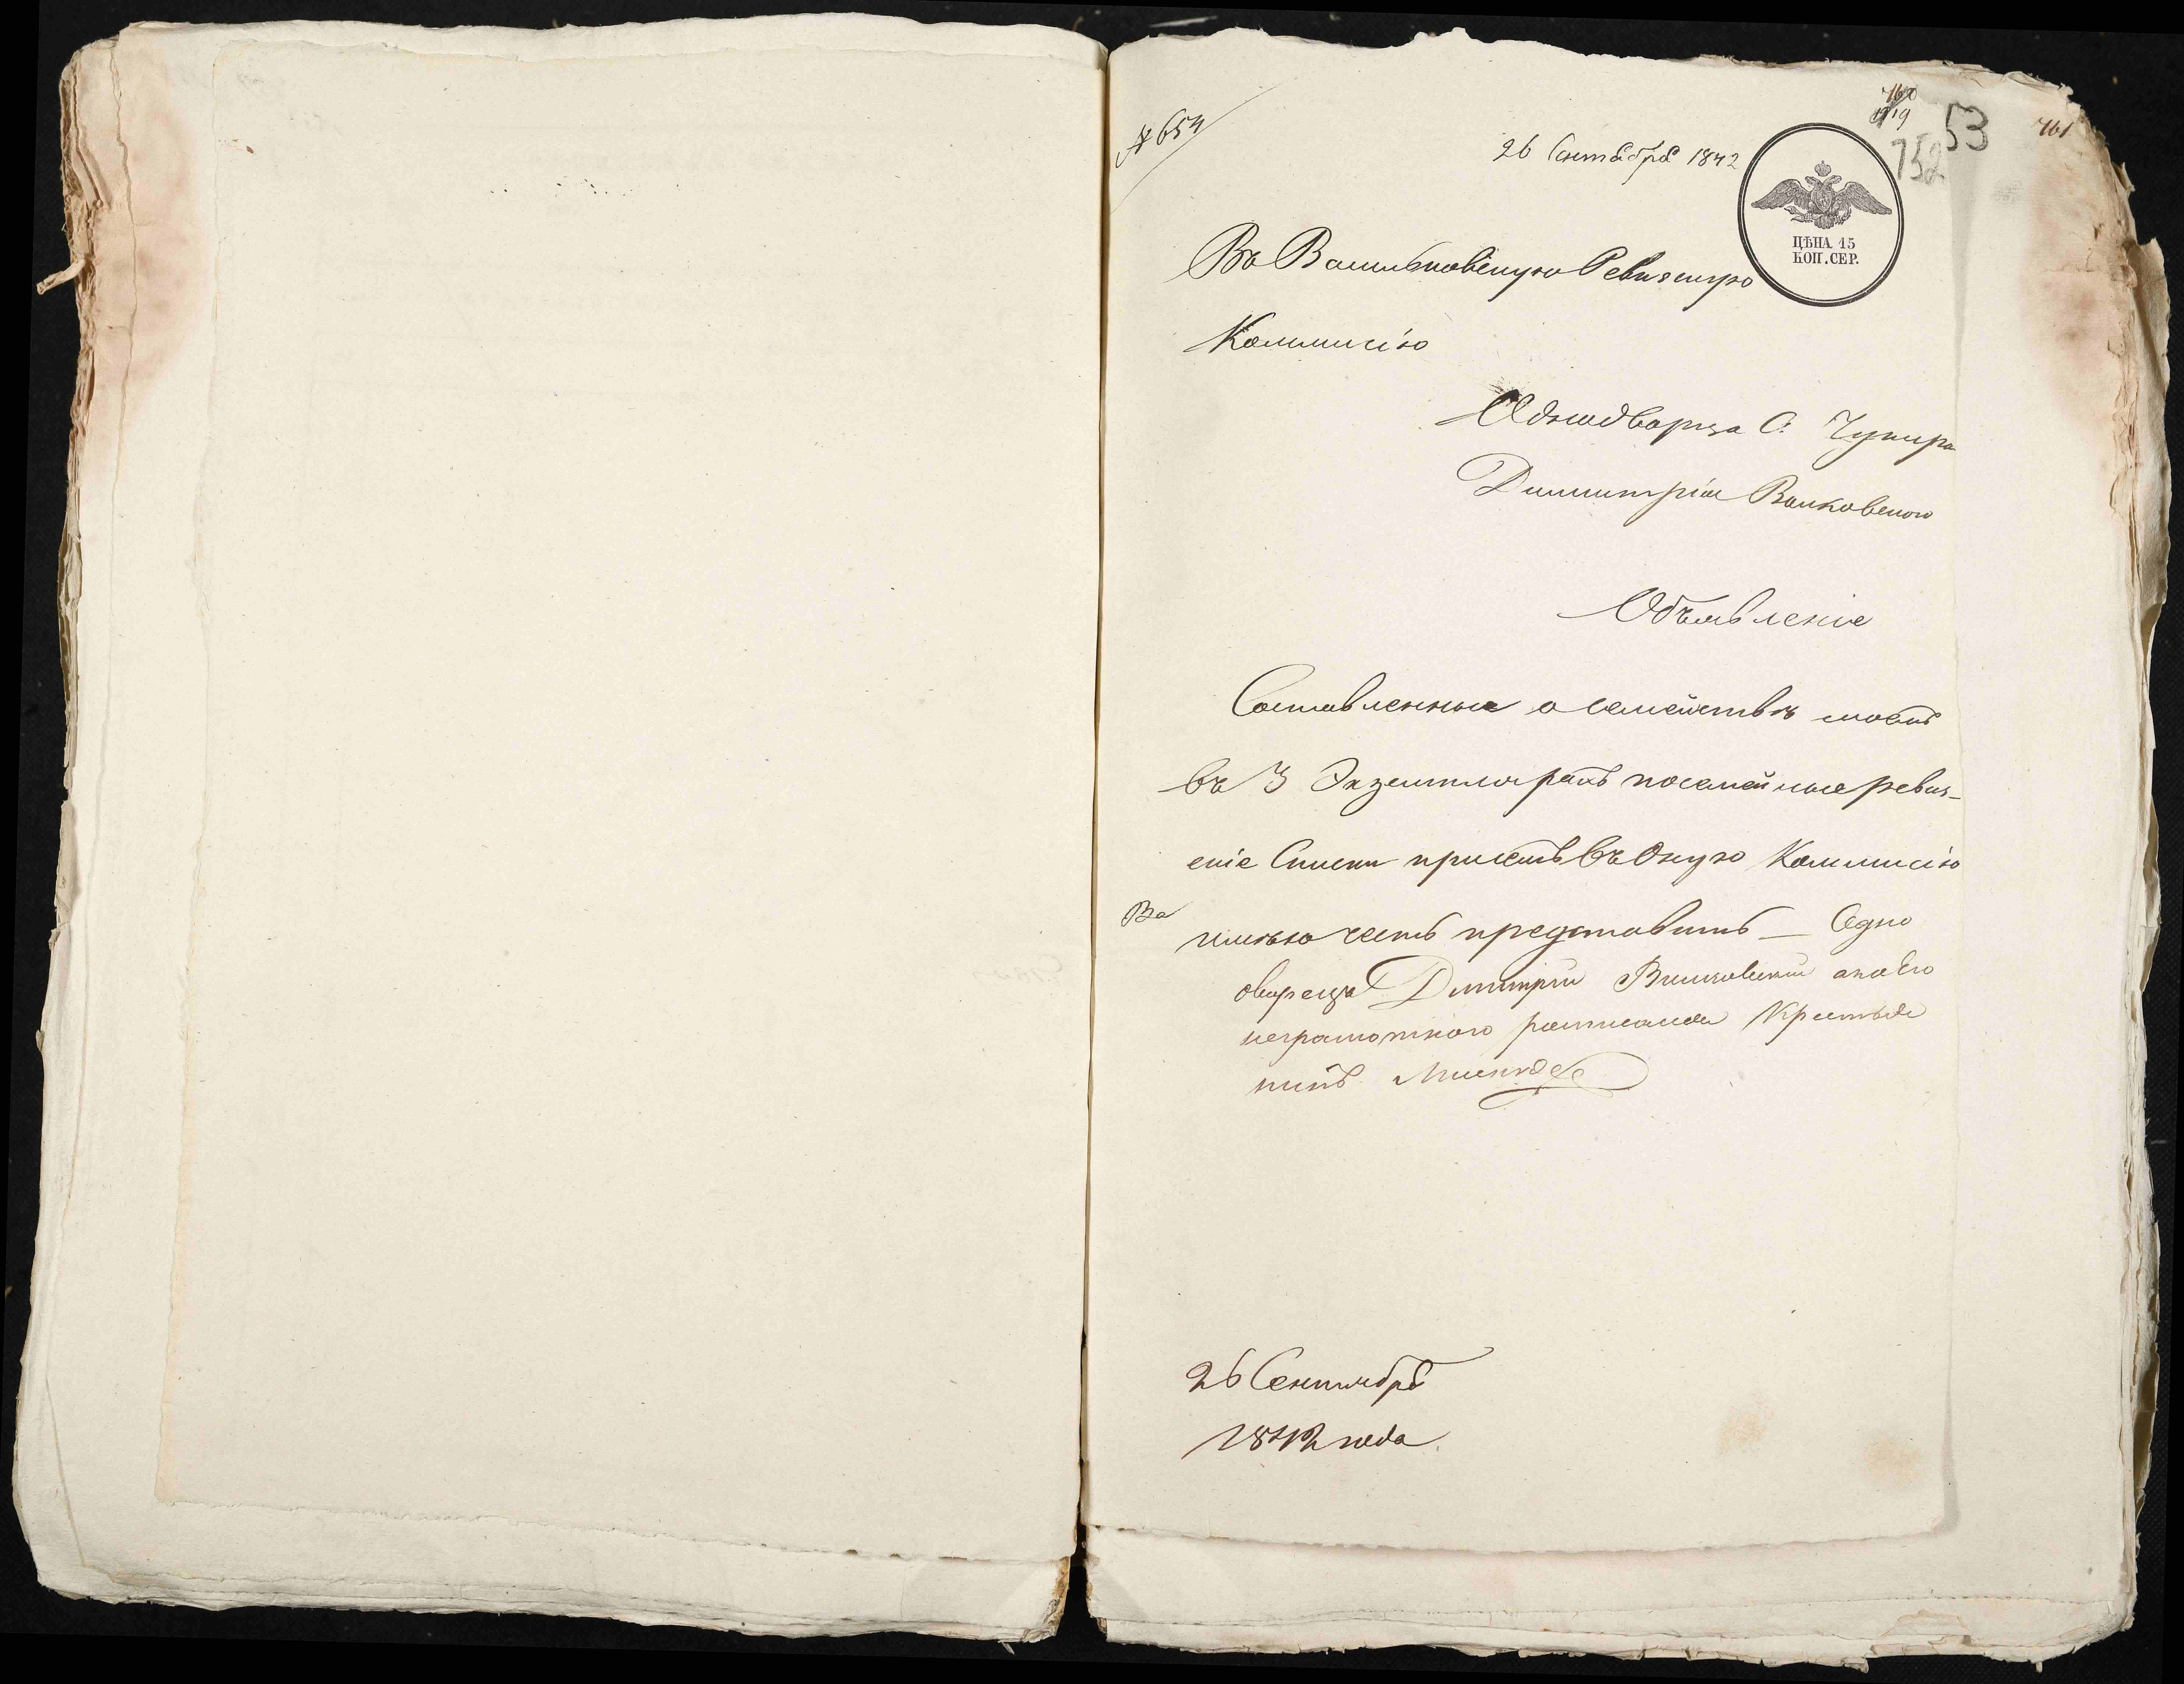 № 654
26 Сентября 1842
760
53
752
761
ЦѢНА 15
КОП. СЕР.
Въ Васильковскую Ревизскую
Коммисію
Однодворца С. Чупира
Димитрія Волковского
Объявленіе
Составленные о семействѣ моемъ
въ 3 Экземплярахъ посемейные ревиз-
скіе Списки при семъ въ Оную Коммисію
имѣю честь представить — Одно
дворецъ Димитрій
неграмотного росписался Крестья
нинъ
26 Сентября
1842 года